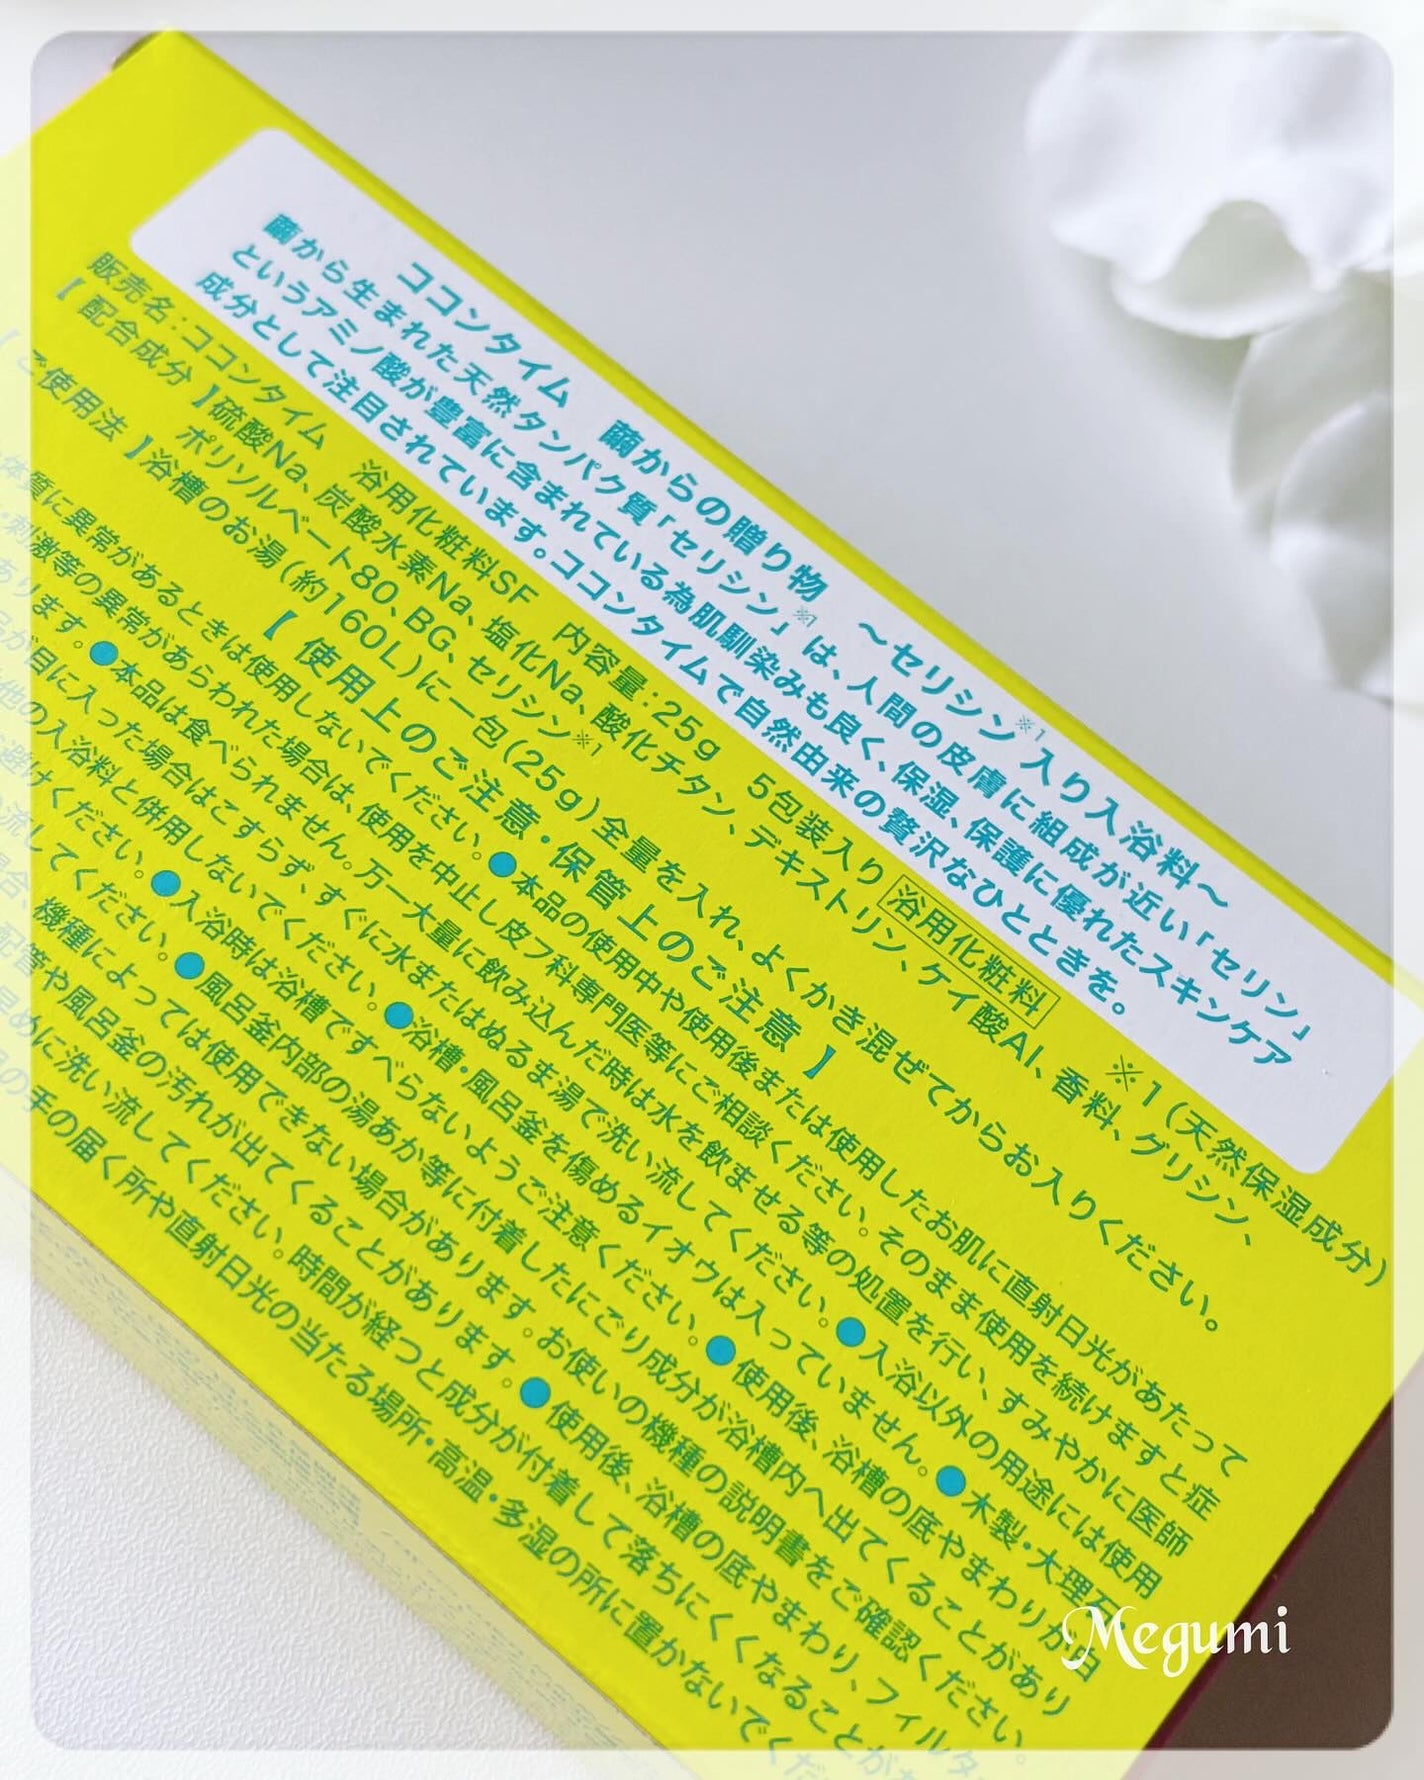 ココンタイム　繭からの贈り物　〜セリシン※1入り入浴料〜
繭から生まれた天然タンパク質「セリシン」※1は、人間の皮膚に組成が近い「セリン」
というアミノ酸が豊富に含まれている為肌馴染みも良く、保湿、保護に優れたスキンケア
成分として注目されています。ココンタイムで自然由来の贅沢なひとときを。
販売名:ココンタイム　浴用化粧料SF　内容量:25g　5包装入り 浴用化粧料　※1(天然保湿成分)
【配合成分】硫酸Na、炭酸水素Na、塩化Na、酸化チタン、デキストリン、ケイ酸Al、香料、グリシン、
ポリソルベート80、BG、セリシン※1
【ご使用法】浴槽のお湯(約160L)に一包(25g)全量を入れ、よくかき混ぜてからお入りください。
【使用上のご注意・保管上のご注意】
に異常があるときは使用しないでください。●本品の使用中や使用後または使用したお肌に直射日光があたって
刺激等の異常があらわれた場合は、使用を中止し皮フ科専門医等にご相談ください。そのまま使用を続けますと症
あります。●本品は食べられません。万一大量に飲み込んだ時は水を飲ませる等の処置を行い、すみやかに医師
が目に入った場合はこすらず、すぐに水またはぬるま湯で洗い流してください。●入浴以外の用途には使用
他の入浴料と併用しないでください。●浴槽・風呂釜を傷めるイオウは入っていません。●木製・大理石
避けください。●入浴時は浴槽ですべらないようご注意ください。●使用後、浴槽の底やまわりが白
流してください。●風呂釜内部の湯あか等に付着したにごり成分が浴槽内へ出てくることがあり
機種によっては使用できない場合があります。お使いの機種の説明書をご確認ください。
配管や風呂釜の汚れが出てくることがあります。●使用後、浴槽の底やまわり、フィルタ
早めに洗い流してください。時間が経つと成分が付着して落ちにくくなることが
の手の届く所や直射日光の当たる場所・高温・多湿の所に置かないでくだ
Megumi